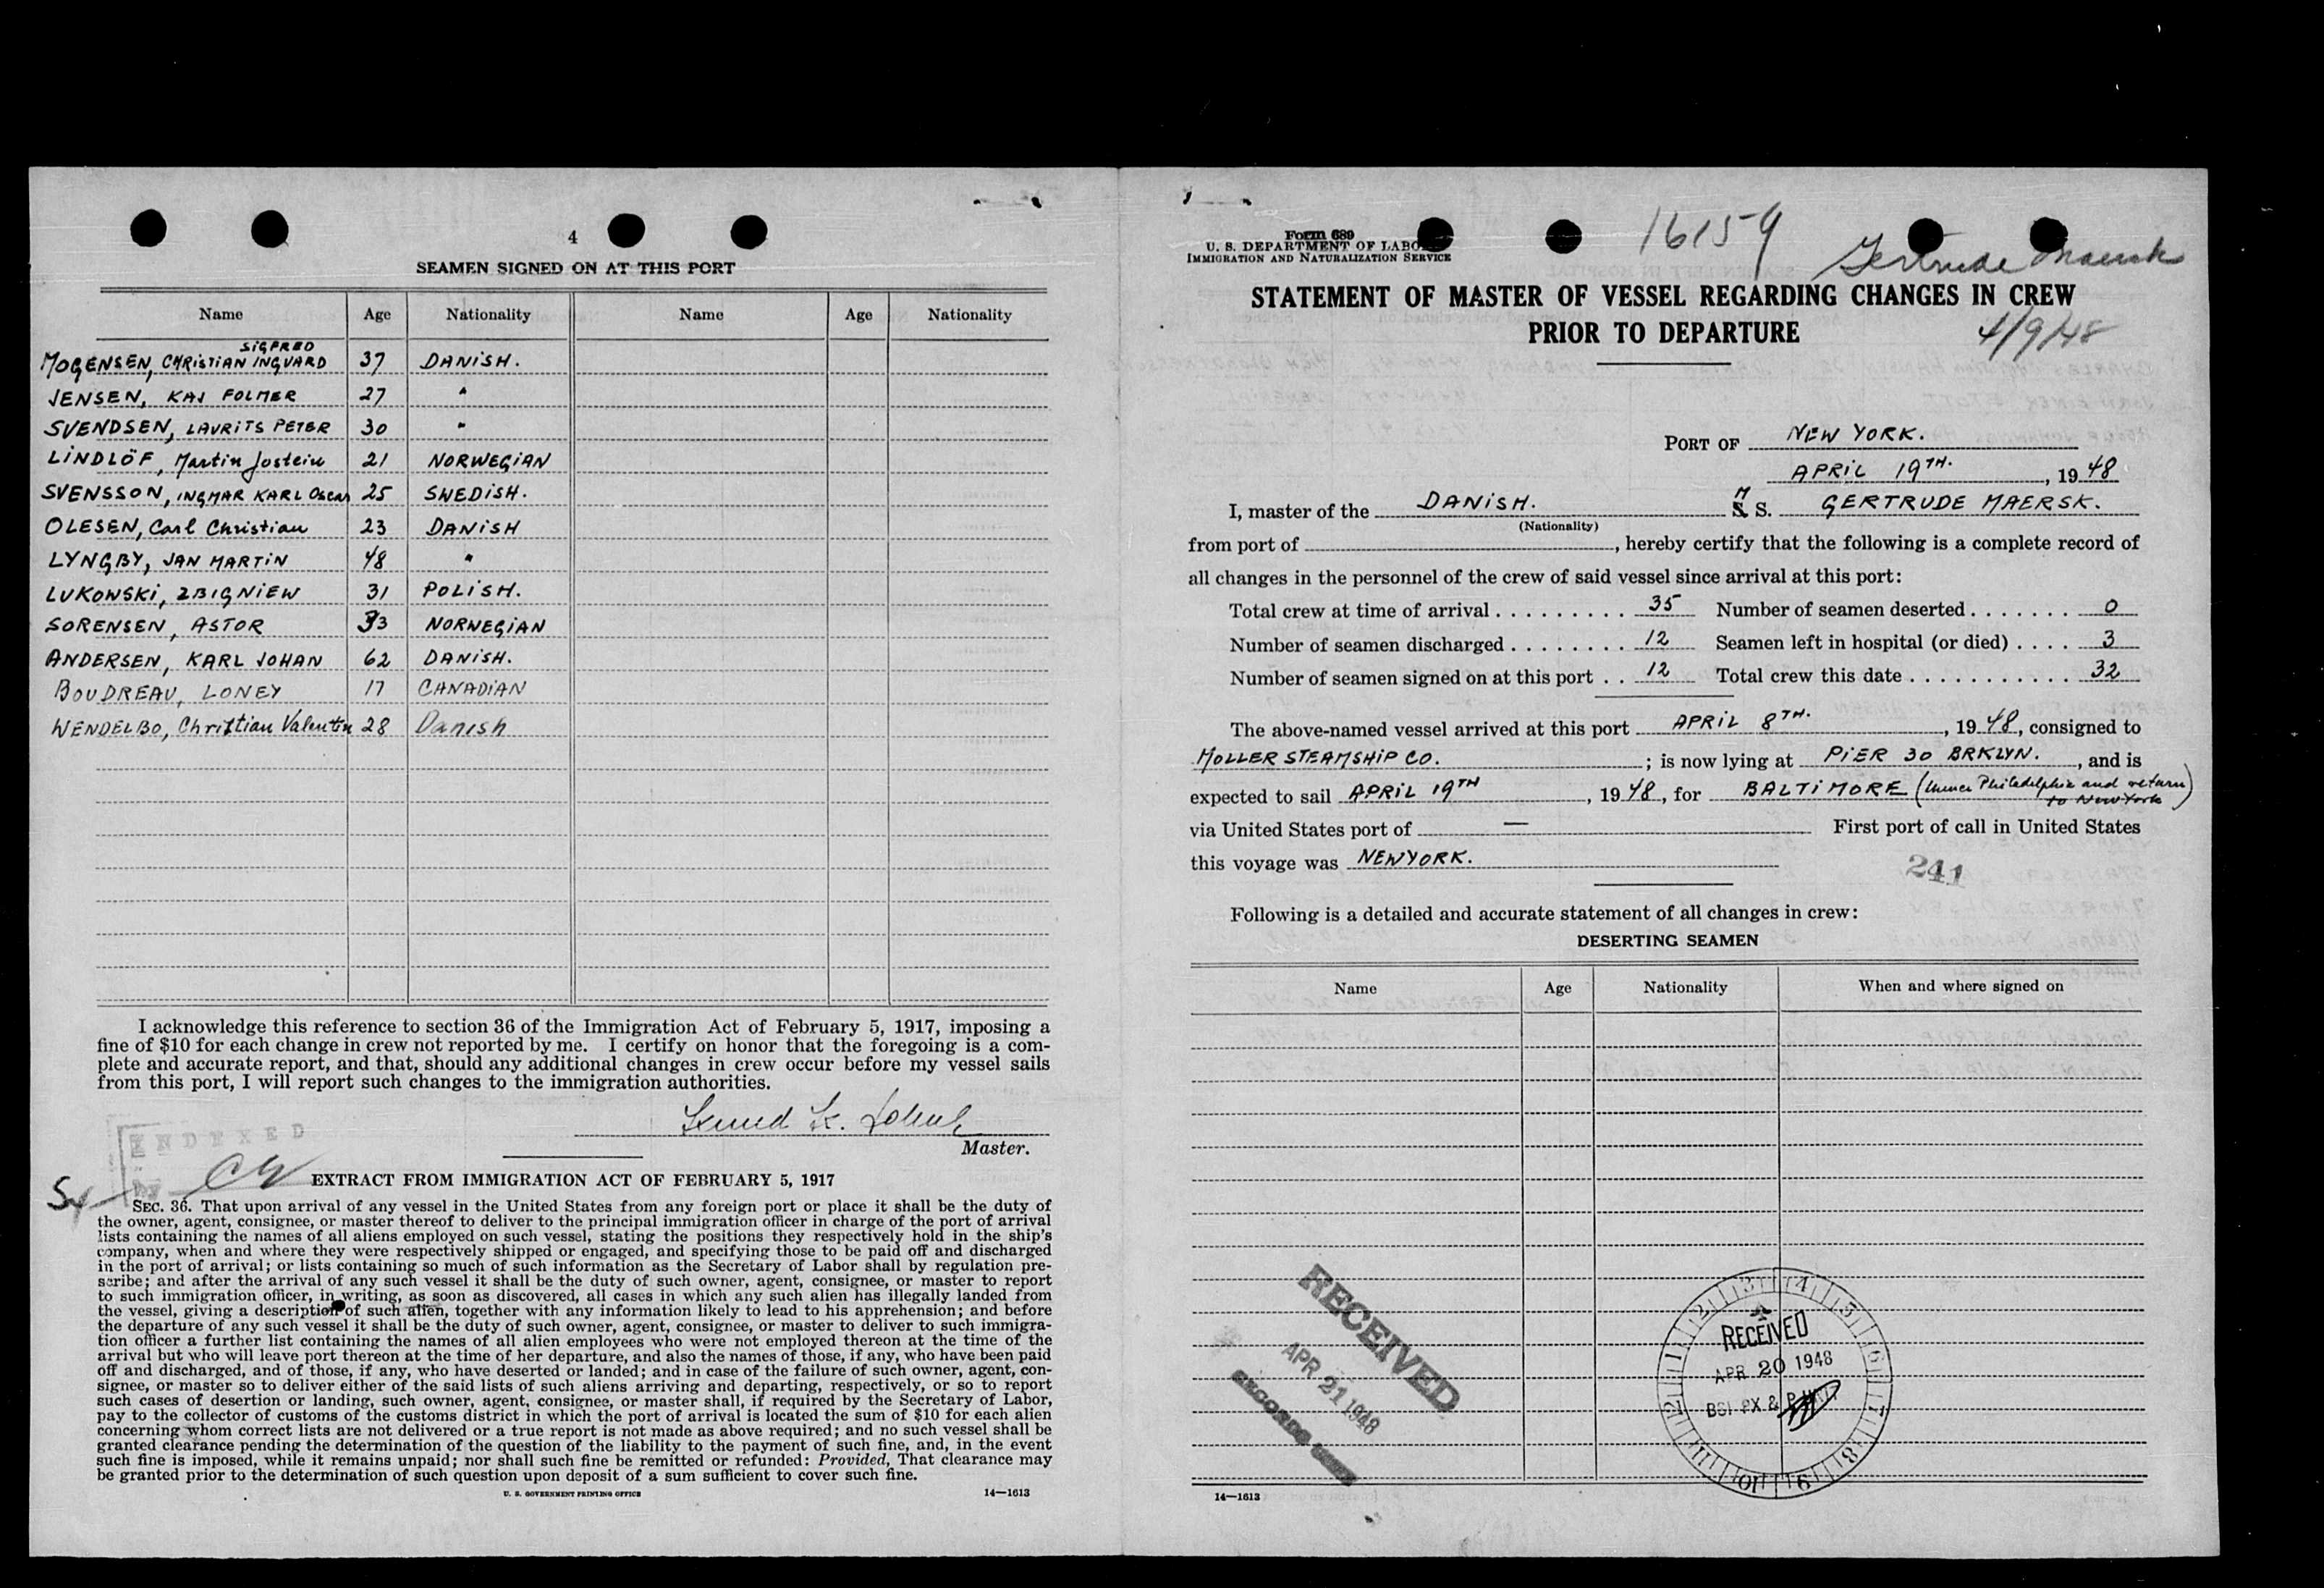 4
SEAMEN SIGNED ON AT THIS PORT
Name Age Nationality Name Age Nationality
SIGFRED
MOGENSEN, CHRISTIAN INGVARD 37 DANISH.
JENSEN, KAJ FOLMER 27 "
SVENDSEN, LAURITS PETER 30 "
LINDLÖF, Martin Jostein 21 NORWEGIAN
SVENSSON, INGMAR KARL Oscar 25 SWEDISH.
OLESEN, Carl Christian 23 DANISH
LYNGBY, JAN MARTIN 48 "
LUKOWSKI, ZBIGNIEW 31 POLISH.
SORENSEN, ASTOR 33 NORWEGIAN
ANDERSEN, KARL JOHAN 62 DANISH.
BOUDREAU, LONEY 17 CANADIAN
WENDELBO, Christian Valentin 28 Danish
I acknowledge this reference to section 36 of the Immigration Act of February 5, 1917, imposing a
fine of $10 for each change in crew not reported by me. I certify on honor that the foregoing is a com-
plete and accurate report, and that, should any additional changes in crew occur before my vessel sails
from this port, I will report such changes to the immigration authorities.
Master.
INDEXED
EXTRACT FROM IMMIGRATION ACT OF FEBRUARY 5, 1917
SEC. 36. That upon arrival of any vessel in the United States from any foreign port or place it shall be the duty of
the owner, agent, consignee, or master thereof to deliver to the principal immigration officer in charge of the port of arrival
lists containing the names of all aliens employed on such vessel, stating the positions they respectively hold in the ship's
company, when and where they were respectively shipped or engaged, and specifying those to be paid off and discharged
in the port of arrival; or lists containing so much of such information as the Secretary of Labor shall by regulation pre-
scribe; and after the arrival of any such vessel it shall be the duty of such owner, agent, consignee, or master to report
to such immigration officer, in writing, as soon as discovered, all cases in which any such alien has illegally landed from
the vessel, giving a description of such alien, together with any information likely to lead to his apprehension; and before
the departure of any such vessel it shall be the duty of such owner, agent, consignee, or master to deliver to such immigra-
tion officer a further list containing the names of all alien employees who were not employed thereon at the time of the
arrival but who will leave port thereon at the time of her departure, and also the names of those, if any, who have been paid
off and discharged, and of those, if any, who have deserted or landed; and in case of the failure of such owner, agent, con-
signee, or master so to deliver either of the said lists of such aliens arriving and departing, respectively, or so to report
such cases of desertion or landing, such owner, agent, consignee, or master shall, if required by the Secretary of Labor,
pay to the collector of customs of the customs district in which the port of arrival is located the sum of $10 for each alien
concerning whom correct lists are not delivered or a true report is not made as above required; and no such vessel shall be
granted clearance pending the determination of the question of the liability to the payment of such fine, and, in the event
such fine is imposed, while it remains unpaid; nor shall such fine be remitted or refunded: Provided, That clearance may
be granted prior to the determination of such question upon deposit of a sum sufficient to cover such fine.
U. S. GOVERNMENT PRINTING OFFICE 14—1613
Form 689
U. S. DEPARTMENT OF LABOR
IMMIGRATION AND NATURALIZATION SERVICE
16159
Gertrude Maersk
STATEMENT OF MASTER OF VESSEL REGARDING CHANGES IN CREW
PRIOR TO DEPARTURE
4/9/48
PORT OF NEW YORK.
APRIL 19TH., 1948
I, master of the DANISH. M S. GERTRUDE MAERSK.
(Nationality)
from port of , hereby certify that the following is a complete record of
all changes in the personnel of the crew of said vessel since arrival at this port:
Total crew at time of arrival . . . . . . . . . . 35 Number of seamen deserted . . . . . . . 0
Number of seamen discharged . . . . . . . . 12 Seamen left in hospital (or died) . . . . 3
Number of seamen signed on at this port . . 12 Total crew this date . . . . . . . . . . . . 32
The above-named vessel arrived at this port APRIL 8TH., 1948, consigned to
MOLLER STEAMSHIP CO. ; is now lying at PIER 30 BRKLYN. , and is
expected to sail APRIL 19TH , 1948, for BALTIMORE (thence Philadelphia and return
to New York)
via United States port of — First port of call in United States
this voyage was NEWYORK.
241
Following is a detailed and accurate statement of all changes in crew:
DESERTING SEAMEN
Name Age Nationality When and where signed on
RECEIVED
APR 21 1948
RECORDS
1 2 3 4 5 6 7 8 9 10 11 12
RECEIVED
APR 20 1948
BSI PX &
14—1613